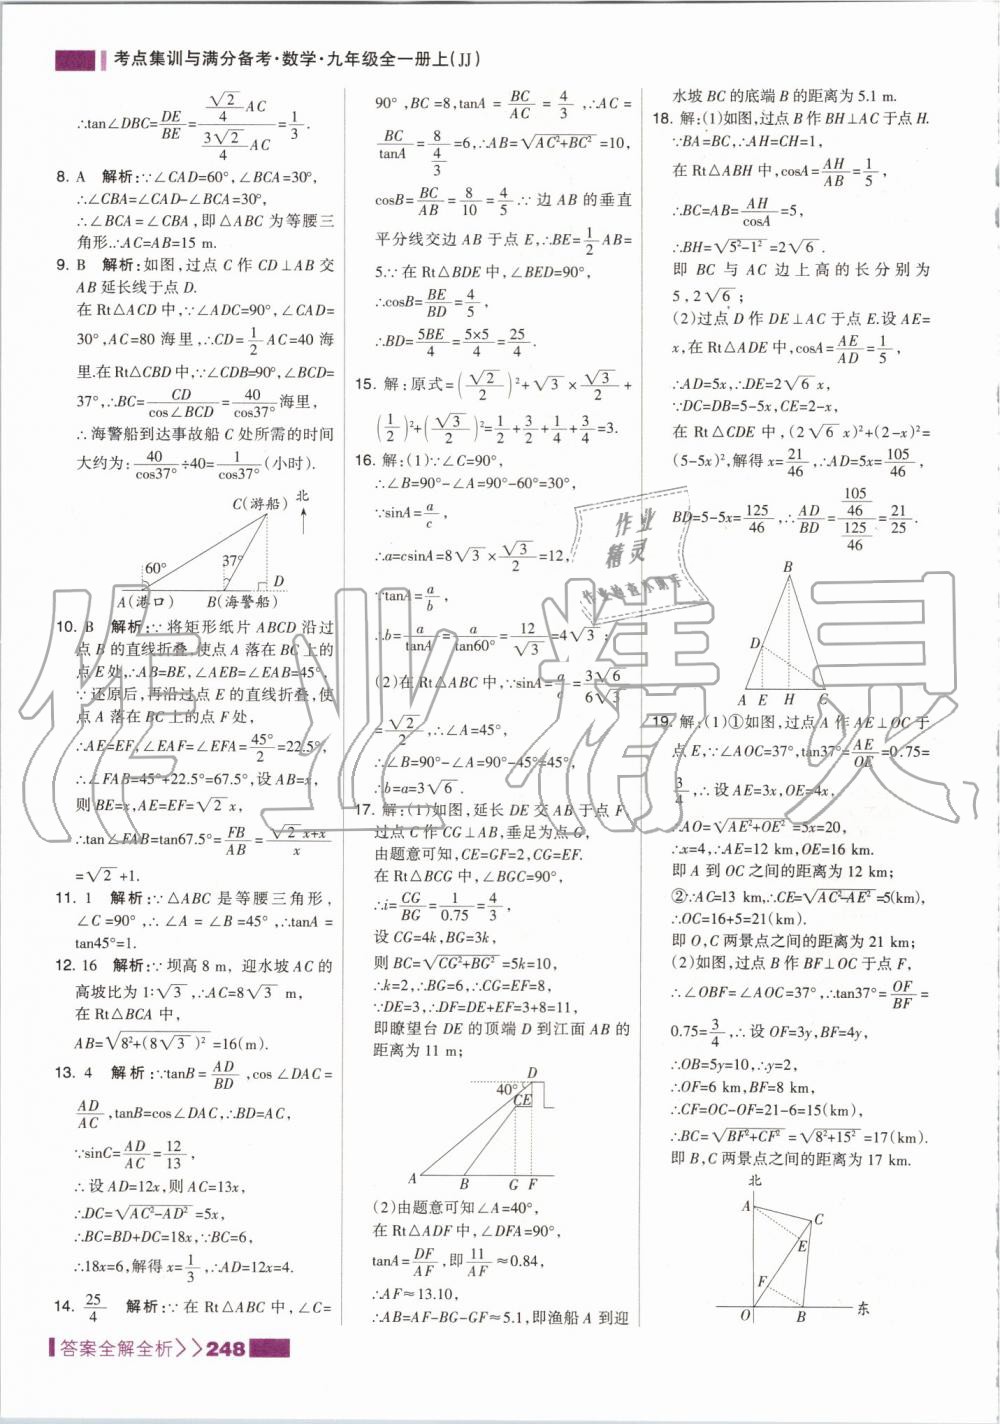 考点集训与满分备考·数学·九年级全一册上(JJ)
∴tan∠DBC=DE/BE=(√2/4 AC)/(3√2/4 AC)=1/3.
8. A 解析:∵∠CAD=60°,∠BCA=30°,
∴∠CBA=∠CAD-∠BCA=30°,
∴∠BCA=∠CBA,即△ABC为等腰三
角形.∴AC=AB=15 m.
9. B 解析:如图,过点C作CD⊥AB交
AB延长线于点D.
在Rt△ACD中,∵∠ADC=90°,∠CAD=
30°,AC=80海里,∴CD=1/2AC=40海
里.在Rt△CBD中,∵∠CDB=90°,∠BCD=
37°,∴BC=CD/cos∠BCD=40/cos37°海里,
∴海警船到达事故船C处所需的时间
大约为:40/cos37°÷40=1/cos37°(小时).
C(游船) 北
60° 37° D
A(港口) B(海警船)
10. B 解析:∵将矩形纸片ABCD沿过
点B的直线折叠,使点A落在BC上的
点E处,∴AB=BE,∠AEB=∠EAB=45°,
∵还原后,再沿过点E的直线折叠,使
点A落在BC上的点F处,
∴AE=EF,∠EAF=∠EFA=45°/2=22.5°,
∴∠FAB=45°+22.5°=67.5°,设AB=x,
则BE=x,AE=EF=√2x,
∴tan∠FAB=tan67.5°=FB/AB=(√2x+x)/x
=√2+1.
11. 1 解析:∵△ABC是等腰三角形,
∠C=90°,∴∠A=∠B=45°,∴tanA=
tan45°=1.
12. 16 解析:∵坝高8 m,迎水坡AC的
高坡比为1:√3,∴AC=8√3 m,
在Rt△BCA中,
AB=√(8²+(8√3)²)=16(m).
13. 4 解析:∵tanB=AD/BD,cos∠DAC=
AD/AC,tanB=cos∠DAC,∴BD=AC,
∵sinC=AD/AC=12/13,
∴设AD=12x,则AC=13x,
∴DC=√(AC²-AD²)=5x,
∴BC=BD+DC=18x,∵BC=6,
∴18x=6,解得x=1/3,∴AD=12x=4.
14. 25/4 解析:∵在Rt△ABC中,∠C=
90°,BC=8,tanA=BC/AC=4/3,∴AC=
BC/tanA=8/(4/3)=6,∴AB=√(AC²+BC²)=10,
cosB=BC/AB=8/10=4/5.∵边AB的垂直
平分线交边AB于点E,∴BE=1/2AB=
5.∵在Rt△BDE中,∠BED=90°,
∴cosB=BE/BD=4/5,
∴BD=5BE/4=5×5/4=25/4.
15. 解:原式=(√2/2)²+√3×√3/2+
(1/2)²+(√3/2)²=1/2+3/2+1/4+3/4=3.
16. 解:(1)∵∠C=90°,
∴∠B=90°-∠A=90°-60°=30°,
∵sinA=a/c,
∴a=csinA=8√3×√3/2=12,
∵tanA=a/b,
∴b=a/tanA=a/tan60°=12/√3=4√3;
(2)在Rt△ABC中,∵sinA=a/c=3√6/6√3
=√2/2,∴∠A=45°,
∴∠B=90°-∠A=90°-45°=45°,
∴b=a=3√6.
17. 解:(1)如图,延长DE交AB于点F,
过点C作CG⊥AB,垂足为点G,
由题意可知,CE=GF=2,CG=EF.
在Rt△BCG中,∠BGC=90°,
∴i=CG/BG=1/0.75=4/3,
设CG=4k,BG=3k,
则BC=√(CG²+BG²)=5k=10,
∴k=2,∴BG=6,∴CG=EF=8,
∵DE=3,∴DF=DE+EF=3+8=11,
即瞭望台DE的顶端D到江面AB的
距离为11 m;
D
40°
CE
A B G F
(2)由题意可知∠A=40°,
在Rt△ADF中,∠DFA=90°,
tanA=DF/AF,即11/AF≈0.84,
∴AF≈13.10,
∴AB=AF-BG-GF≈5.1,即渔船A到迎
水坡BC的底端B的距离为5.1 m.
18. 解:(1)如图,过点B作BH⊥AC于点H.
∵BA=BC,∴AH=CH=1,
在Rt△ABH中,cosA=AH/AB=1/5,
∴BC=AB=AH/cosA=5,
∴BH=√(5²-1²)=2√6.
即BC与AC边上高的长分别为
5,2√6;
(2)过点D作DE⊥AC于点E.设AE=
x,在Rt△ADE中,cosA=AE/AD=1/5,
∴AD=5x,∴DE=2√6x,
∵DC=DB=5-5x,CE=2-x,
在Rt△CDE中,(2√6x)²+(2-x)²=
(5-5x)²,解得x=21/46,∴AD=5x=105/46,
BD=5-5x=125/46,∴AD/BD=(105/46)/(125/46)=21/25.
B
D
A E H C
19. 解:(1)①如图,过点A作AE⊥OC于
点E,∵∠AOC=37°,tan37°=AE/OE=0.75=
3/4,∴设AE=3x,OE=4x,
∴AO=√(AE²+OE²)=5x=20,
∴x=4,∴AE=12 km,OE=16 km.
即A到OC之间的距离为12 km;
②∵AC=13 km,∴CE=√(AC²-AE²)=5(km),
∴OC=16+5=21(km).
即O,C两景点之间的距离为21 km;
(2)如图,过点B作BF⊥OC于点F,
∴∠OBF=∠AOC=37°,∴tan37°=OF/BF=
0.75=3/4,∴设OF=3y,BF=4y,
∴OB=5y=10,∴y=2,
∴OF=6 km,BF=8 km,
∴CF=OC-OF=21-6=15(km),
∴BC=√(BF²+CF²)=√(8²+15²)=17(km).
即B,C两景点之间的距离为17 km.
北
A
C
E
F
O B 东
答案全解全析>>248
作业精灵
作业
精灵